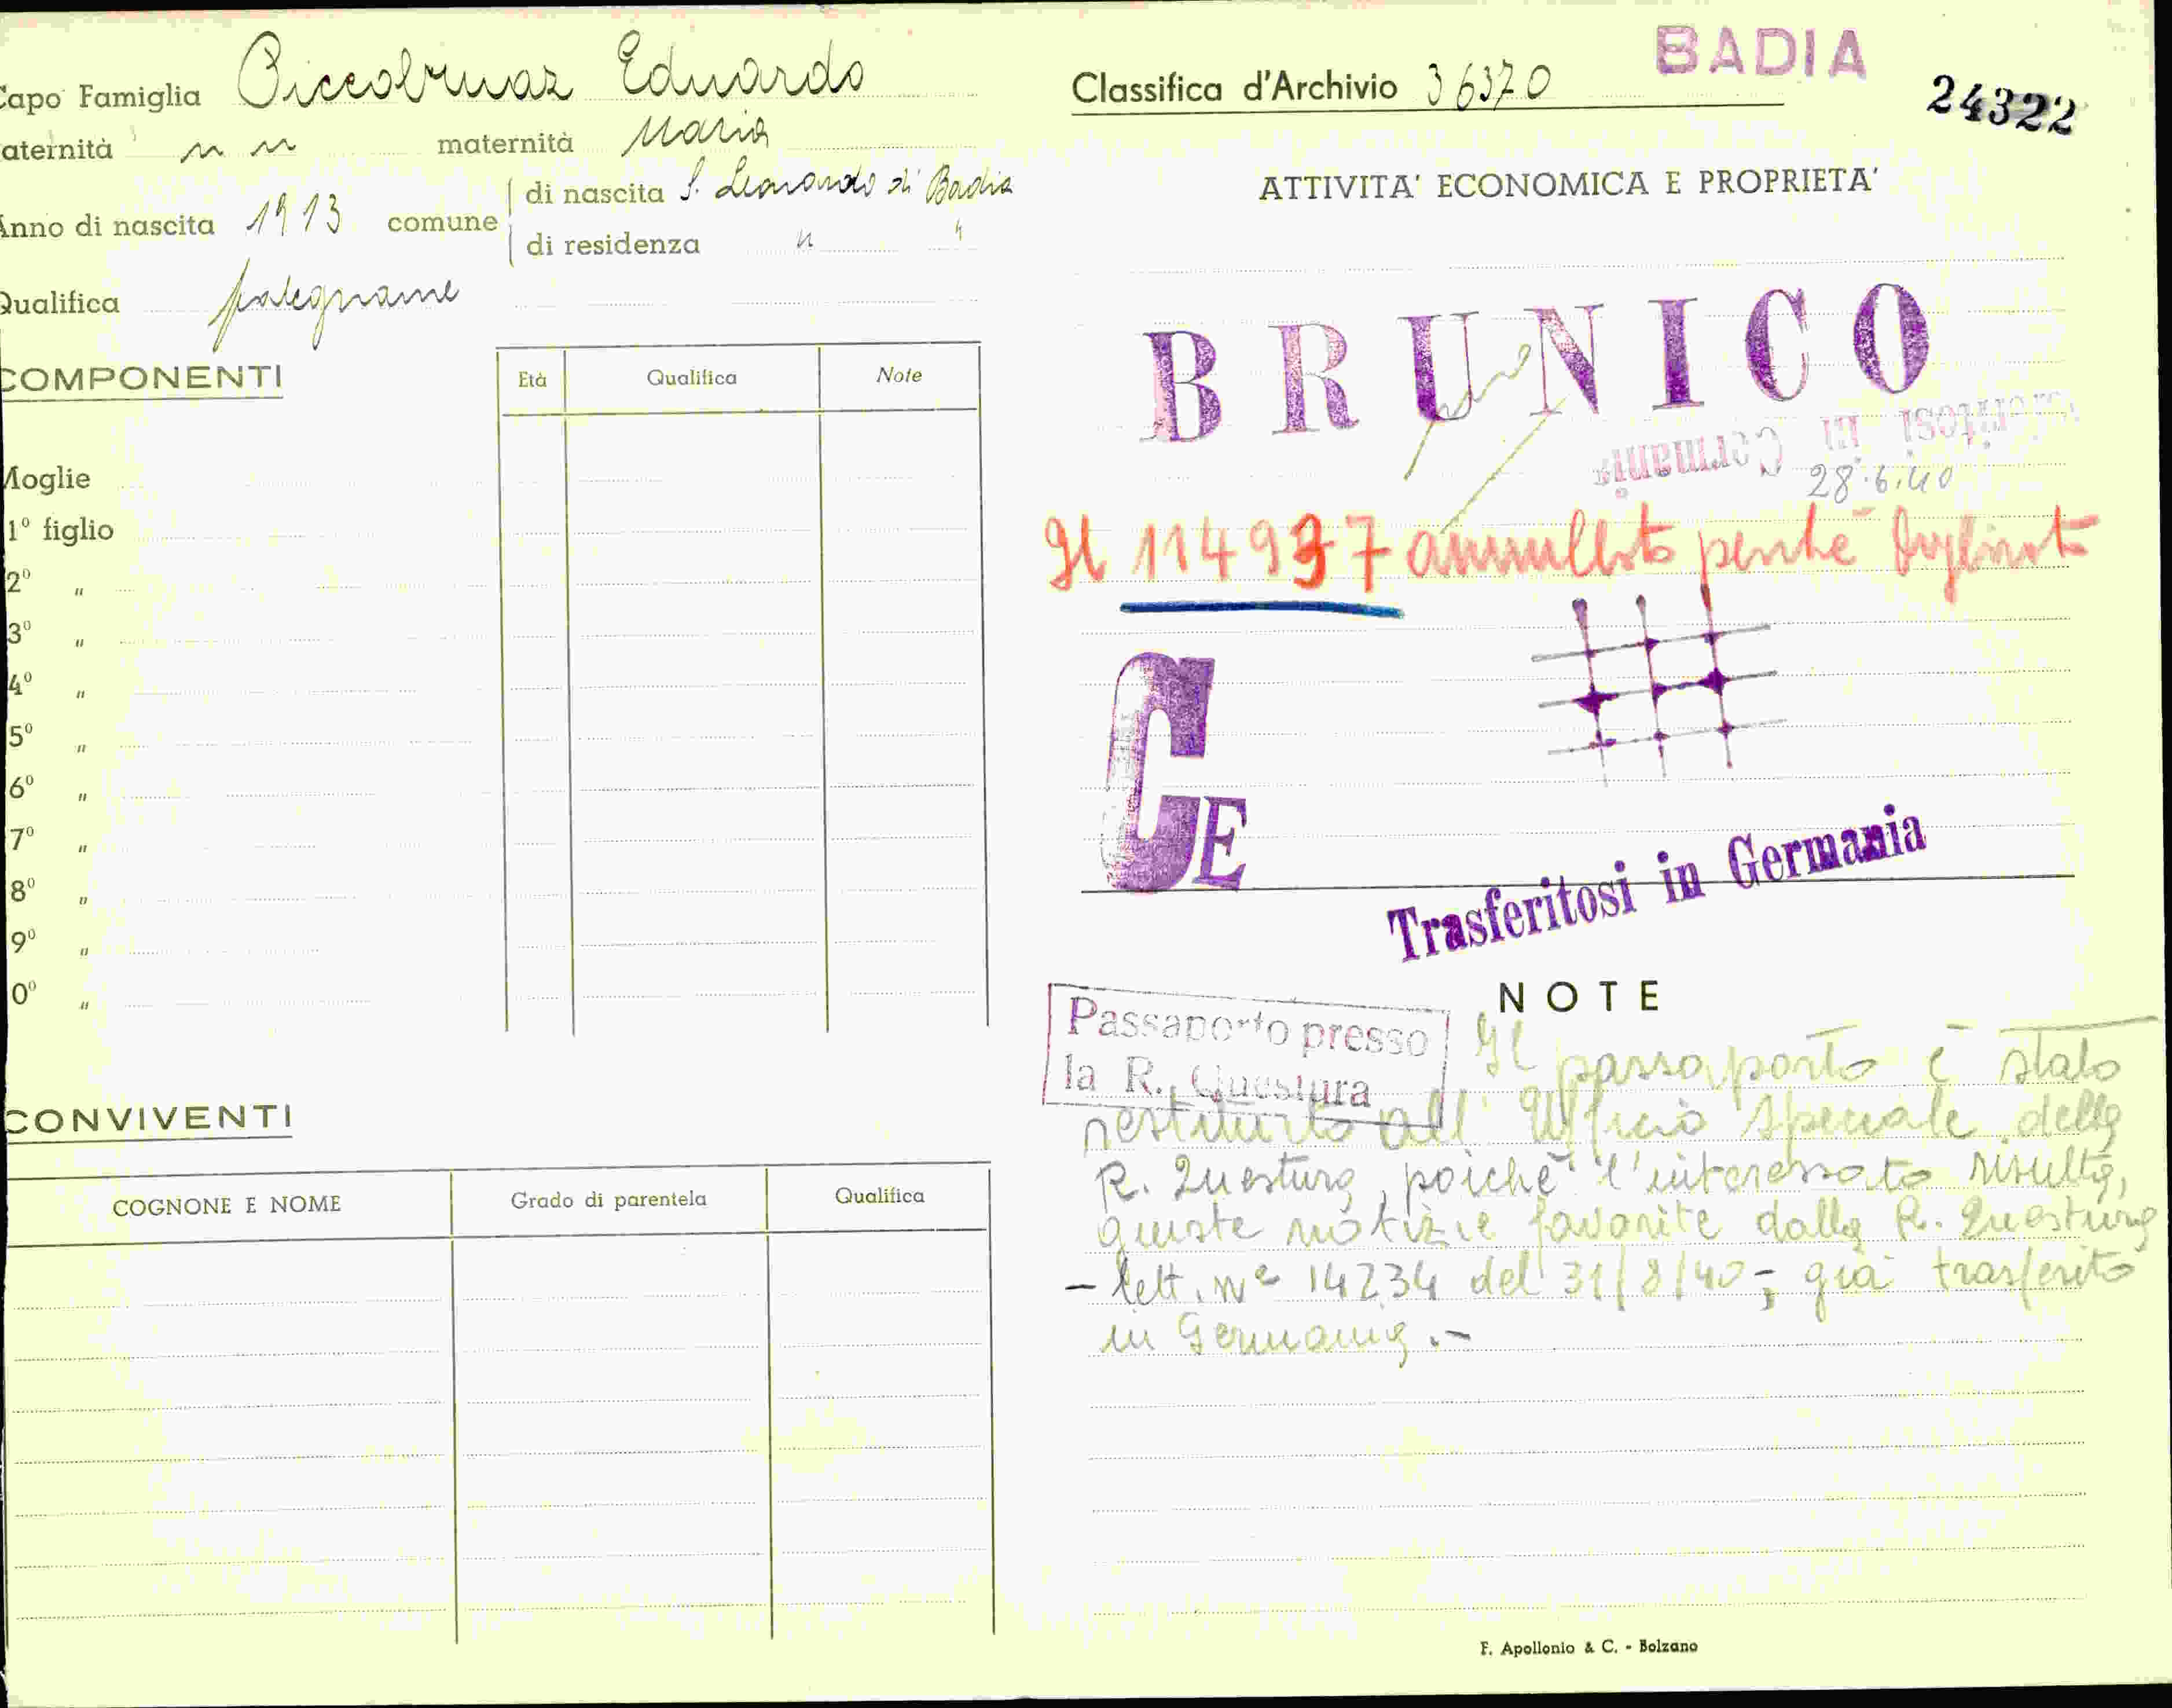 Capo Famiglia Piccolruaz Eduardo
aternità n n maternità Maria
Anno di nascita 1913 comune di nascita S. Leonardo di Badia
di residenza " "
Qualifica falegname
COMPONENTI
Età Qualifica Note
Moglie
1º figlio
2º "
3º "
4º "
5º "
6º "
7º "
8º "
9º "
0º "
CONVIVENTI
COGNONE E NOME Grado di parentela Qualifica
BADIA
Classifica d'Archivio 36370
24322
ATTIVITA' ECONOMICA E PROPRIETA'
BRUNICO
Trasferitosi in Germania
28.6.40
Il 114937 annullato perchè
CE
Trasferitosi in Germania
NOTE
Passaporto presso
la R. Questura
Il passaporto è stato
restituito all'Ufficio Speciale della
R. Questura, poichè l'interessato risulta,
giuste notizie favorite dalla R. Questura
- lett. nº 14234 del 31/8/40 -, già trasferito
in Germania.-
F. Apollonio & C. - Bolzano